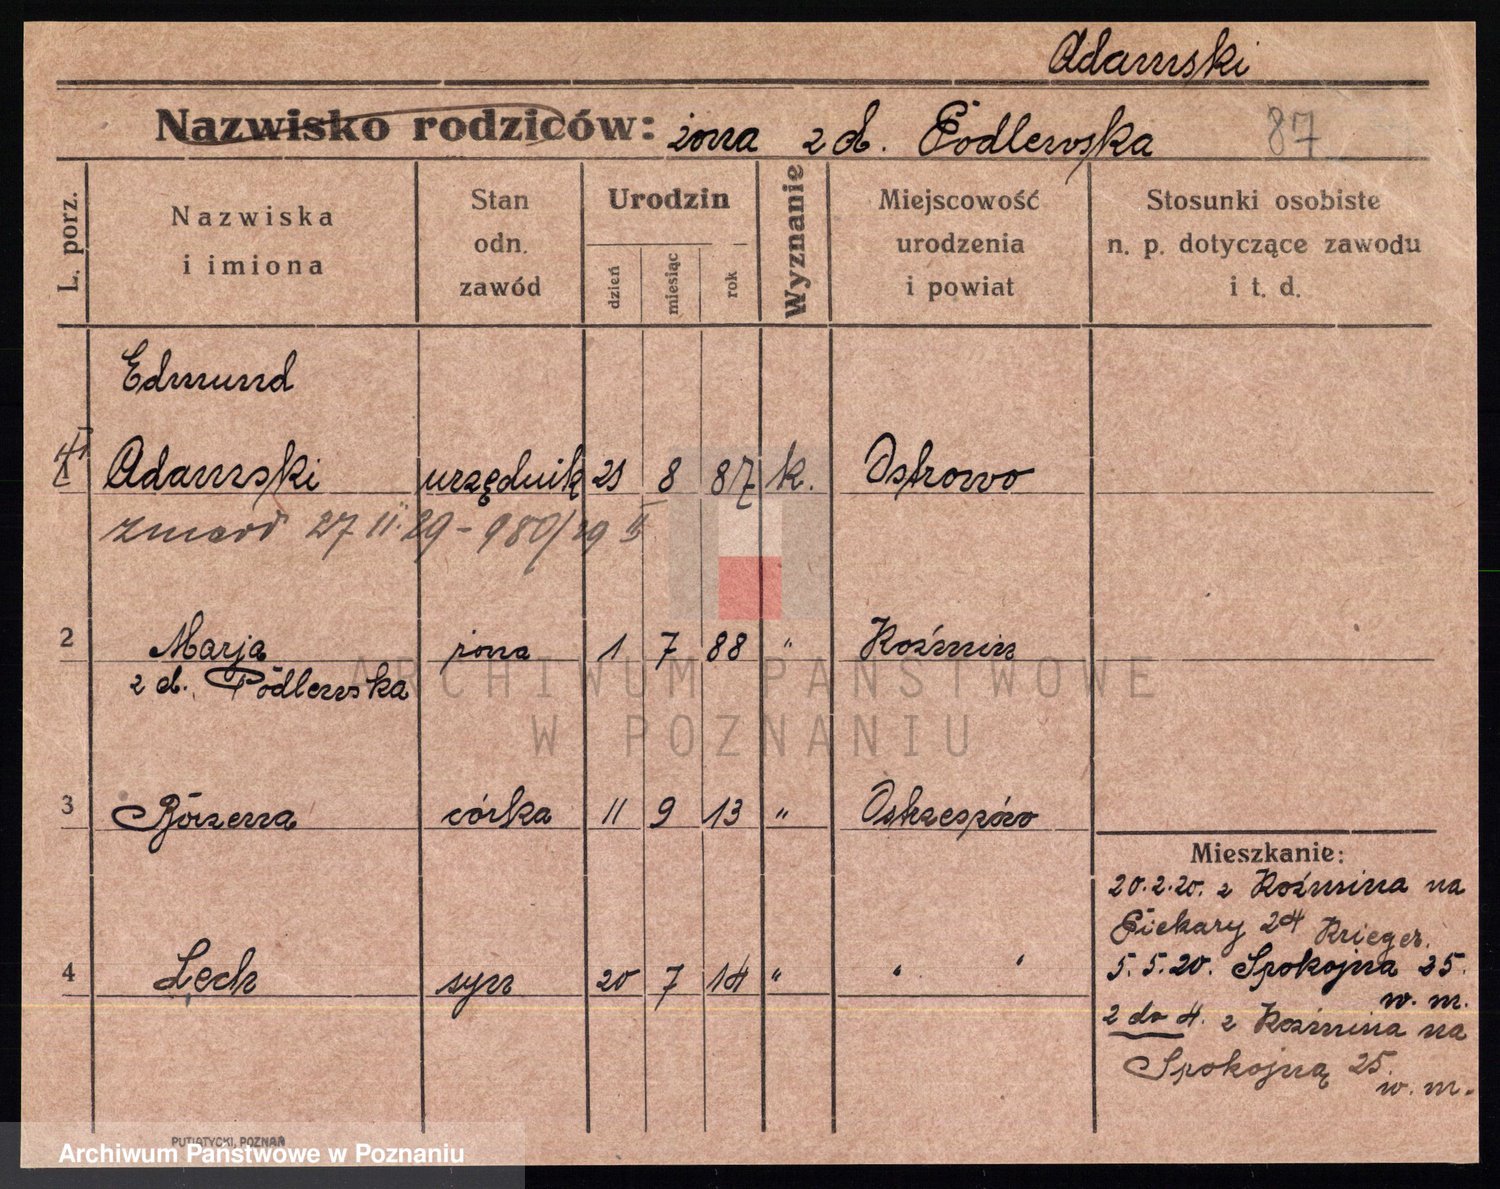 Adamski
Nazwisko rodziców: żona z d. Podlewska 87
L. porz.
Nazwiska
i imiona
Stan
odn.
zawód
Urodzin
dzień
miesiąc
rok
Wyznanie
Miejscowość
urodzenia
i powiat
Stosunki osobiste
n. p. dotyczące zawodu
i t. d.
Edmund
Adamski urzędnik 21 8 87 k. Ostrowo
zmarł 27 II. 29 - 980/29 II
2 Marja żona 1 7 88 " Koźmin
z d. Podlewska
3 Bożena córka 11 9 13 " Ostrzeszów
4 Lech syn 20 7 14 " " "
Mieszkanie:
20.2.20. z Koźmina na
Piekary 24 Krieger.
5.5.20. Spokojna 25.
w. m.
2 do 4. z Koźmina na
Spokojną 25.
w. m.
PUTIATYCKI, POZNAŃ
ARCHIWUM PAŃSTWOWE
W POZNANIU
Archiwum Państwowe w Poznaniu